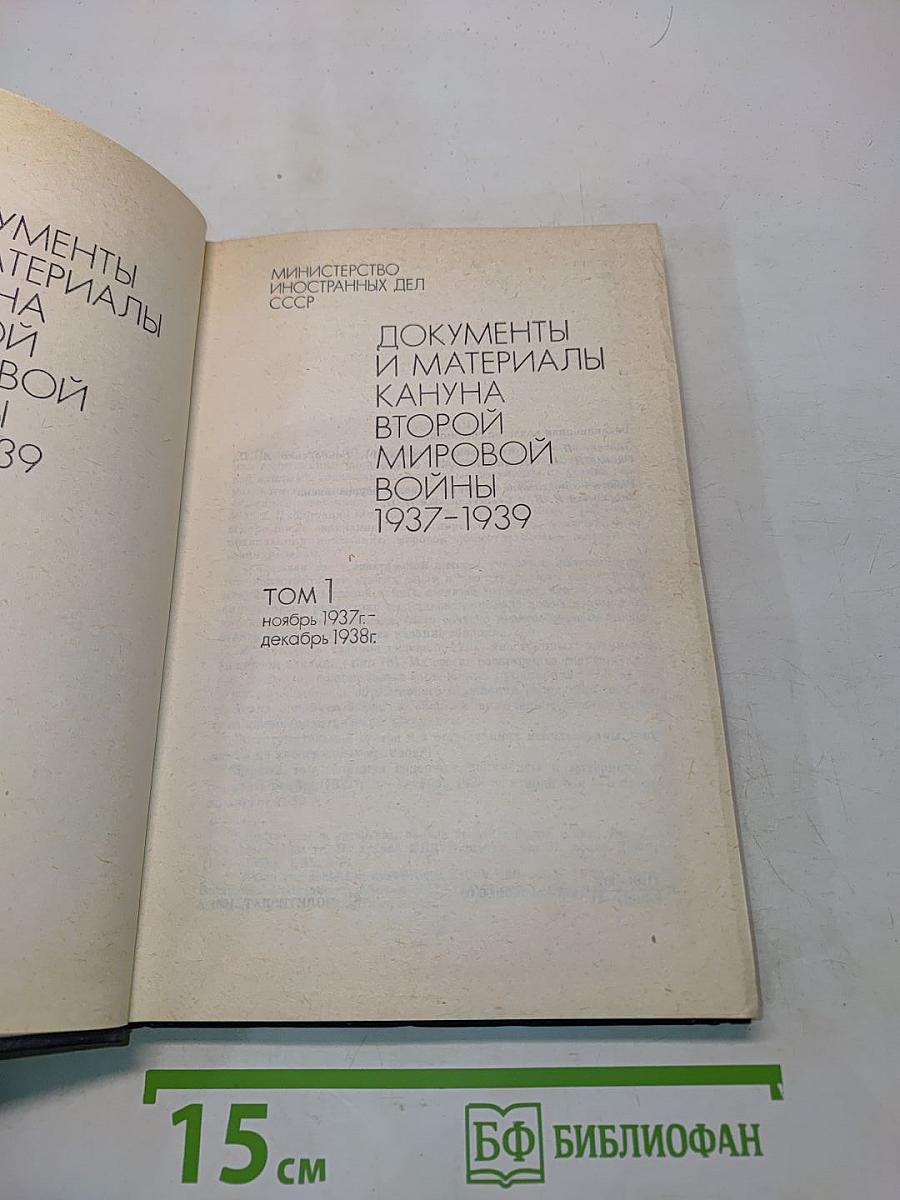 УМЕНТЫ
АТЕРИАЛЫ
НА
ОЙ
ВОЙ
Ы
39
МИНИСТЕРСТВО
ИНОСТРАННЫХ ДЕЛ
СССР
ДОКУМЕНТЫ
И МАТЕРИАЛЫ
КАНУНА
ВТОРОЙ
МИРОВОЙ
ВОЙНЫ
1937-1939
ТОМ 1
ноябрь 1937г.-
декабрь 1938г.
15 см
БФ БИБЛИОФАН